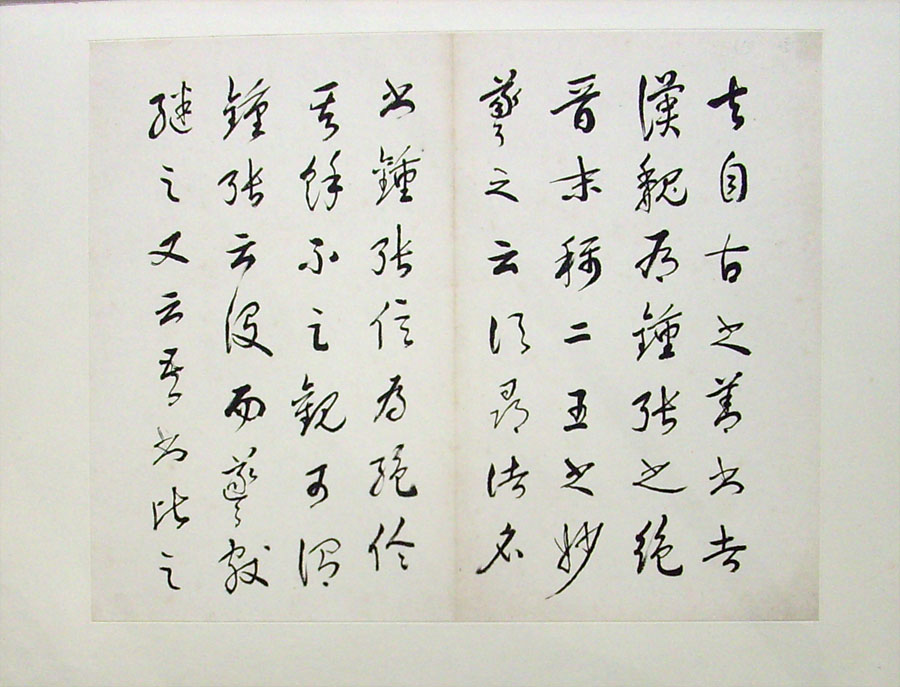 夫自古之善書者
漢魏有鍾張之絕
晉末稱二王之妙
羲之云頃尋諸名
書鍾張信為絕倫
其餘不足觀可謂
鍾張云沒而羲獻
繼之又云吾書比之